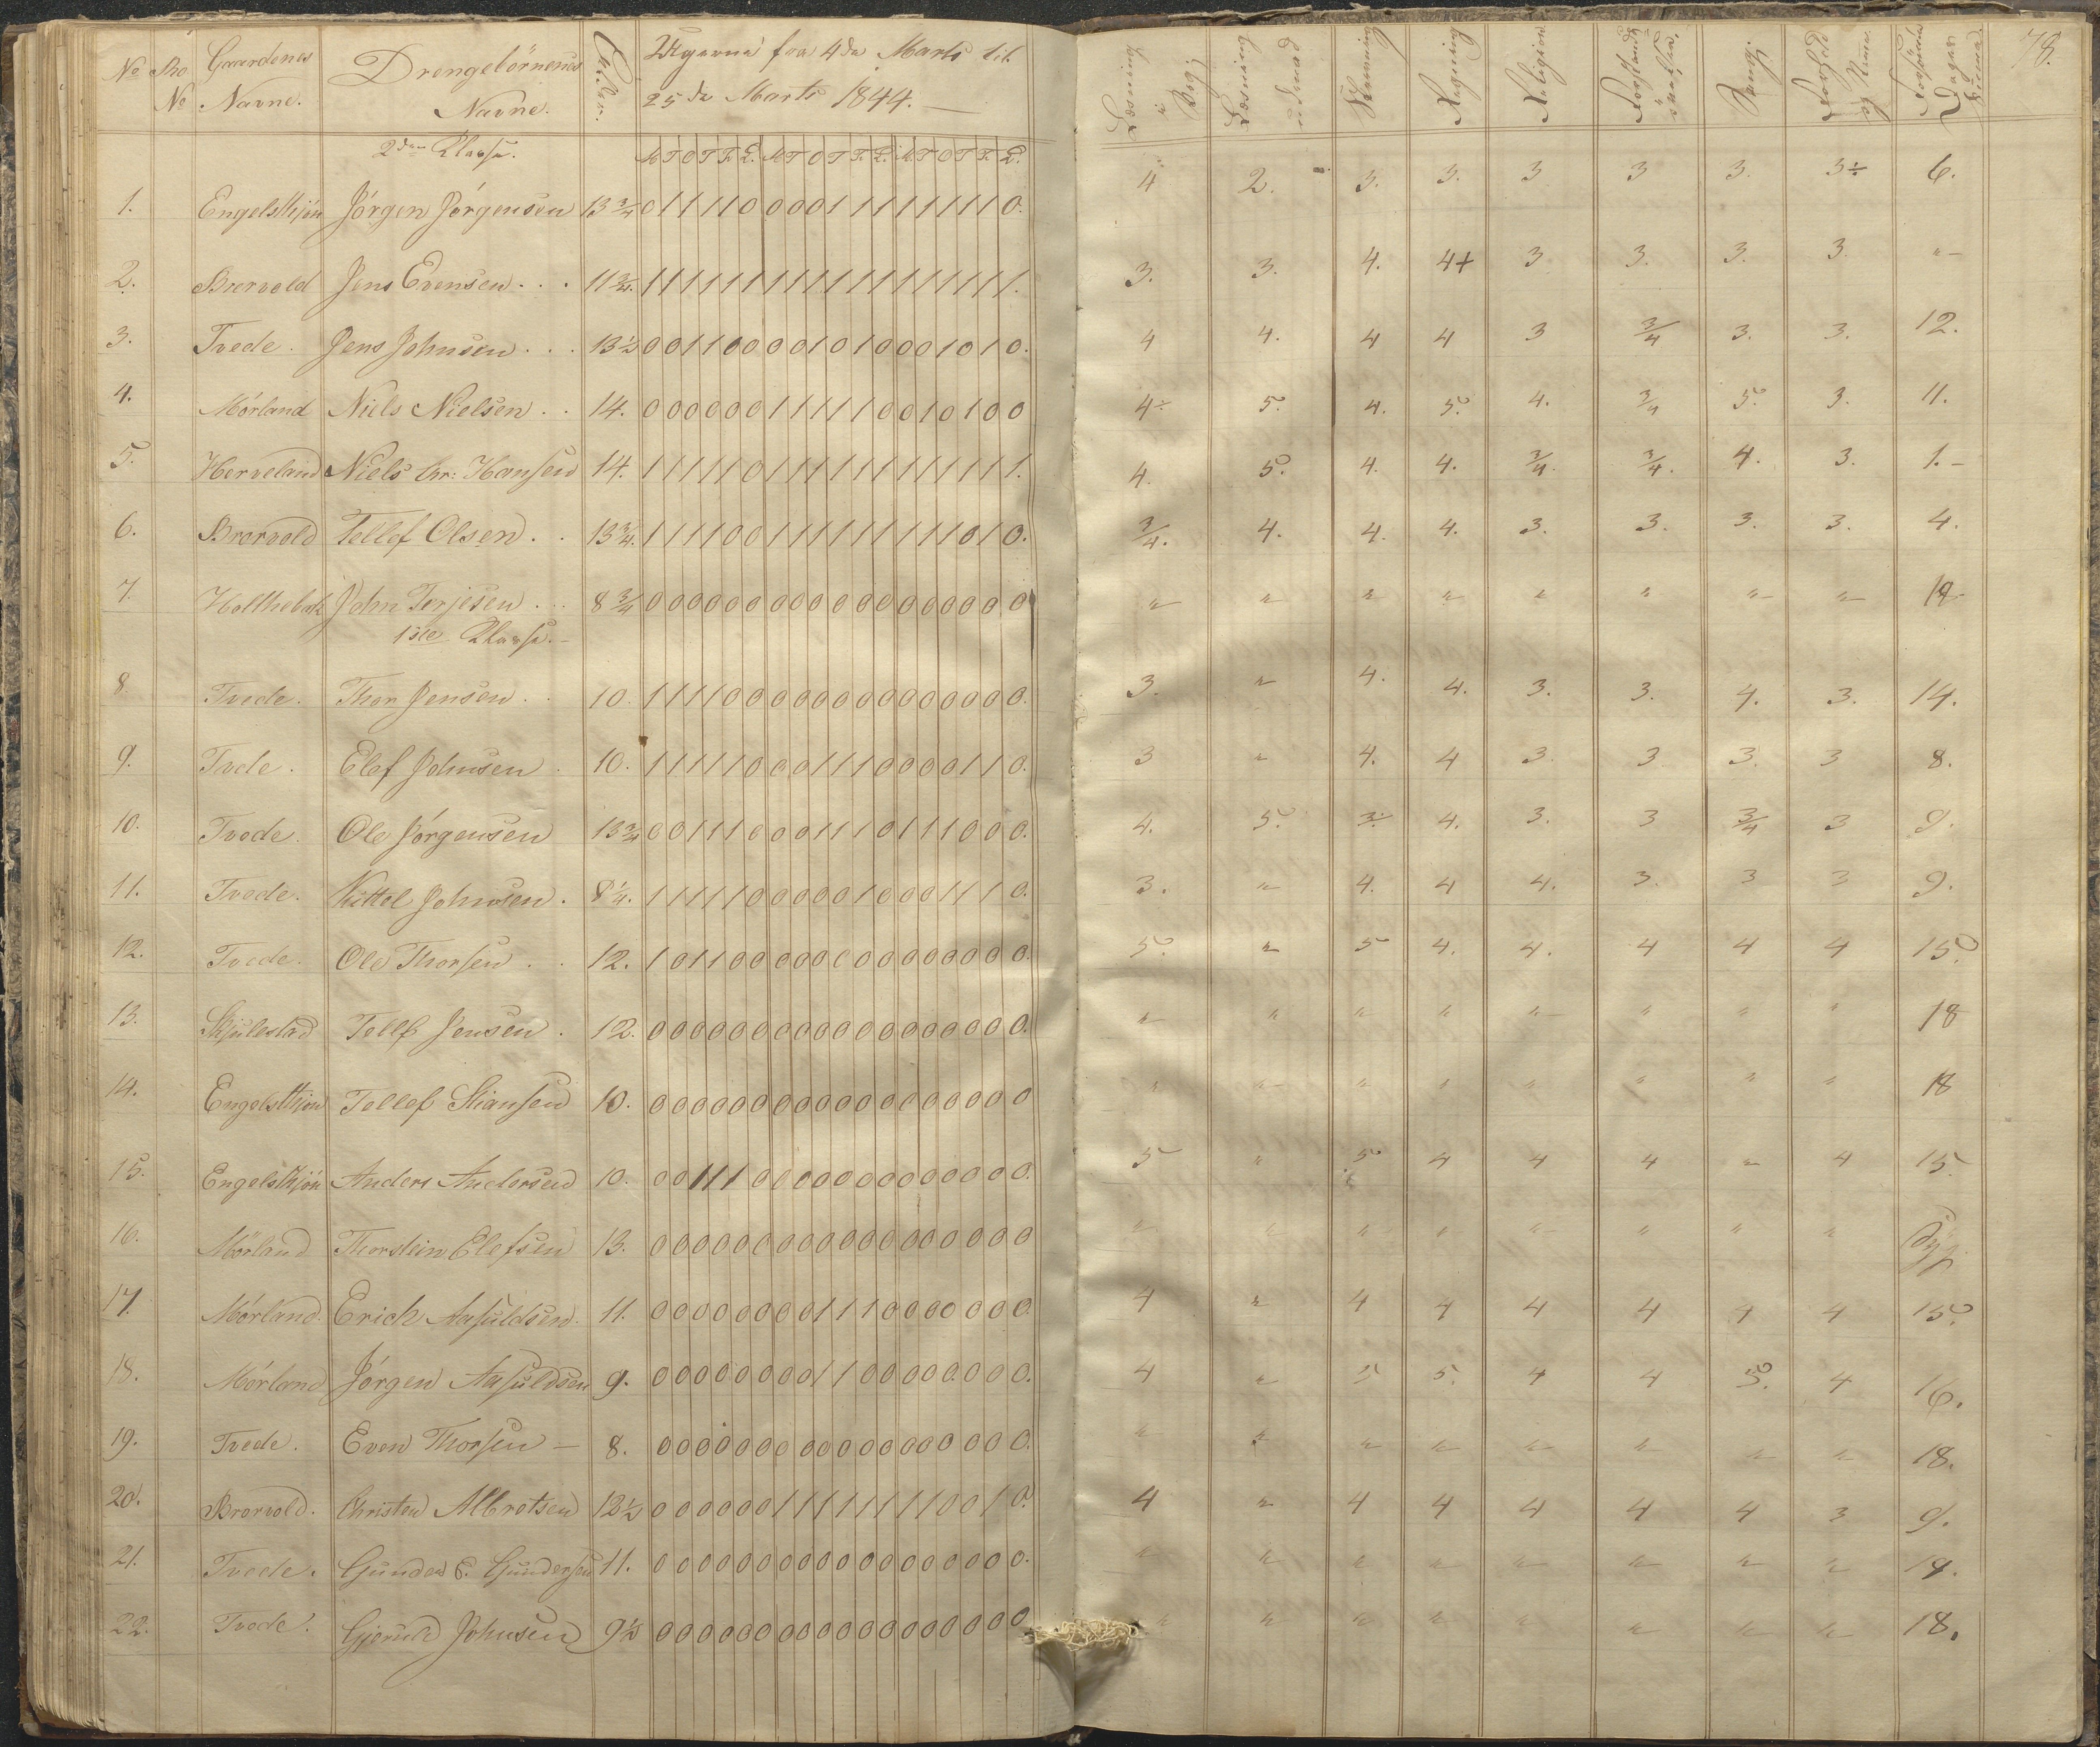 No Pro No Gaardenes Navne. Drengebørnenes Navne. Ugerne fra 4de Marts til 25de Marts 1844. Læsning i Bog; Læsning udenad Skrivning Regning Religion Sang; 78.
2den Klasse. M T O T F. L. M T O T F. L. M T O T F. L.
1. Engelskjøn Jørgen Jørgensen 13 3/4 0 1 1 1 1 0 0 0 0 1 1 1 1 1 1 1 1 0. 4 2. 3. 3. 3 3 3. 3÷ 6.
2. Brorvold Jens Evensen . . . 11 3/4. 1 1 1 1 1 1 1 1 1 1 1 1 1 1 1 1 1 1. 3. 3. 4. 4+ 3 3. 3. 3. "
3. Tvede. Jens Johnsen . . . 13 1/2 0 0 1 1 0 0 0 0 1 0 1 0 0 0 1 0 1 0. 4 4. 4 4 3 3/4 3. 3. 12.
4. Mørland Niels Nielsen . . 14. 0 0 0 0 0 0 1 1 1 1 1 0 0 1 0 1 0 0 4÷ 5. 4. 5. 4. 3/4 5. 3. 11.
5. Herveland Niels Chr: Hansen 14. 1 1 1 1 1 0 1 1 1 1 1 1 1 1 1 1 1 1. 4. 5. 4. 4. 3/4. 3/4. 4. 3. 1.
6. Brorvold Tellef Olsen . . 13 3/4. 1 1 1 1 0 0 1 1 1 1 1 1 1 1 1 0 1 0. 3/4. 4. 4. 4. 3. 3. 3. 3. 4.
7. John Terjesen . . . 8 3/4 0 0 0 0 0 0 0 0 0 0 0 0 0 0 0 0 0 0 " " " " " " " "
1ste Klasse.
8. Tvede. Thor Jensen . . 10. 1 1 1 1 0 0 0 0 0 0 0 0 0 0 0 0 0 0. 3. " 4. 4. 3. 3. 4. 3. 14.
9. Tvede. Elef Johnsen . 10. 1 1 1 1 1 0 0 0 1 1 1 0 0 0 0 1 1 0. 3 " 4. 4 3. 3 3. 3 8.
10. Tvede. Ole Jørgensen 13 3/4 0 0 1 1 1 0 0 0 1 1 1 0 1 1 1 0 0 0. 4. 5. 3÷ 4. 3. 3 3/4 3 9.
11. Tvede. Kittel Johnsen . 8 1/4. 1 1 1 1 1 0 0 0 0 0 1 0 0 0 1 1 1 0. 3. " 4. 4 4. 3. 3 3 9.
12. Tvede. Ole Thorsen . . 12. 1 0 1 1 0 0 0 0 0 0 0 0 0 0 0 0 0 0. 5. " 5 4. 4. 4 4 4 15.
13. Skjulestad Tellef Jensen . 12. 0 0 0 0 0 0 0 0 0 0 0 0 0 0 0 0 0 0. " " " " " " " " 18
14. Engelskjøn Tellef Stiansen 10. 0 0 0 0 0 0 0 0 0 0 0 0 0 0 0 0 0 0 " " " " " " " " 18
15. Engelskjøn Anders Andersen 10. 0 0 1 1 1 0 0 0 0 0 0 0 0 0 0 0 0 0. 5 " 5 4 4 4 " 4 15.
16. Mørland Thorstein Elefsen 13. 0 0 0 0 0 0 0 0 0 0 0 0 0 0 0 0 0 0 " " " " " " " " Syg.
17. Mørland. Erich Aasuldsen. 11. 0 0 0 0 0 0 0 0 1 1 1 0 0 0 0 0 0 0. 4 " 4 4 4 4 4 4 15.
18. Mørland Jørgen Aasuldsen 9. 0 0 0 0 0 0 0 0 1 1 0 0 0 0 0 0 0 0. 4 " 5 5. 4 4 5. 4 16.
19. Tvede. Even Thorsen — 8. 0 0 0 0 0 0 0 0 0 0 0 0 0 0 0 0 0 0. " " " " " " " " 18.
20. Brorvold. Christen Albretsen 12 1/2 0 0 0 0 0 0 1 1 1 1 1 1 1 1 0 0 1 0. 4 " 4 4 4 4 4 3 9.
21. Tvede. Gunder G. Gundersen 11. 0 0 0 0 0 0 0 0 0 0 0 0 0 0 0 0 0 0. " " " " " " " "
22. Tvede. Gjeruld Johnsen 9 1/2 0 0 0 0 0 0 0 0 0 0 0 0 0 0 0 0 0 0. " " " " " " " " 18.